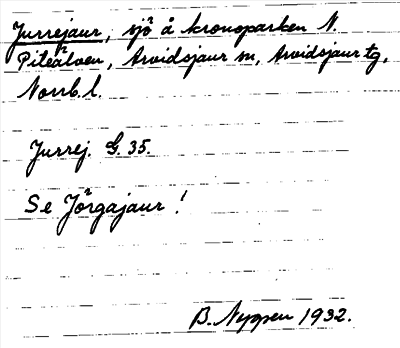 Jurrejaur, sjö å kronoparken N.
Piteälven, Arvidsjaur sn, Arvidsjaur tg,
Norrb. l.
Jurrej. G. 35.
Se Jörgajaur!
B. Nyppen 1932.